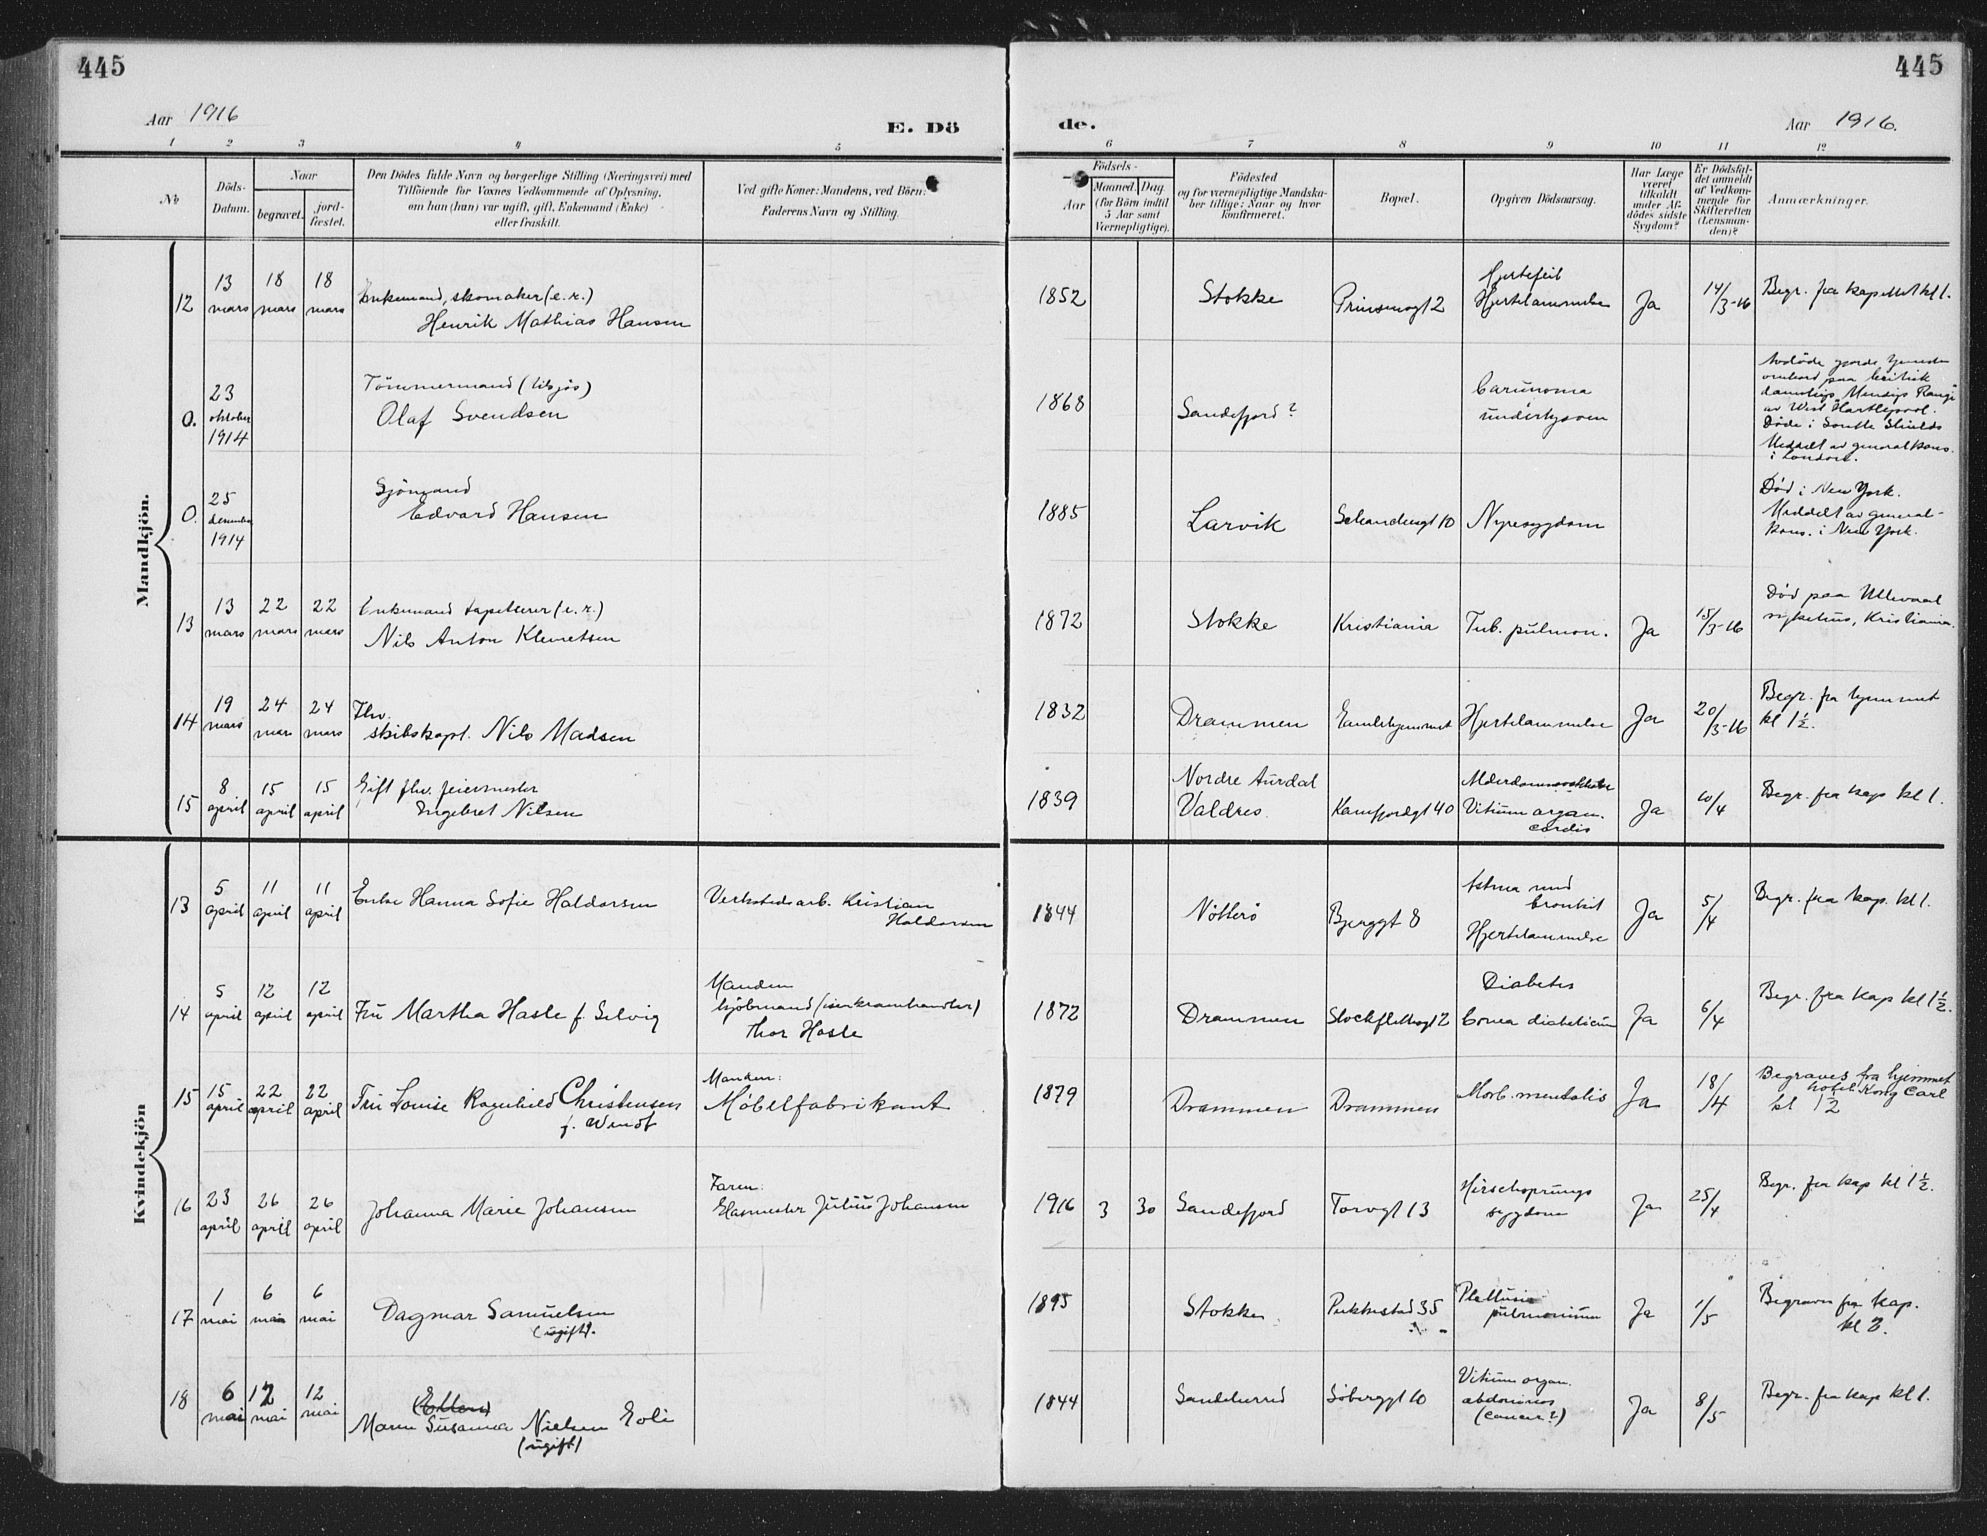 445
445
Aar 1916
E. Dö
de.
Aar 1916.
1 2 3 4 5
6 7 8 9 10 11 12
No
Döds-
Datum.
Naar
begravet.
jord-
fæstet.
Den Dödes fulde Navn og borgerlige Stilling (Næringsvei) med
Tilföiende for Voxnes Vedkommende af Oplysning,
om han (hun) var ugift, gift, Enkemand (Enke)
eller fraskilt.
Ved gifte Koner: Mandens, ved Börn:
Faderens Navn og Stilling.
Födsels-
Aar
Maaned. Dag.
(for Börn indtil
5 Aar samt
Værnepligtige).
Födested
og for værnepligtige Mandska-
ber tillige: Naar og hvor
konfirmeret.
Bopæl.
Opgiven Dödsaarsag.
Har Læge
været
tilkaldt
under Af-
dödes sidste
Sygdom?
Er Dödsfal-
det anmeldt
af Vedkom-
mende for
Skifteretten
(Lensman-
den)?
Anmærkninger.
Mandkjön.
12
13 mars
18 mars
18 mars
Enkemand, skomaker (e. r.)
Henrik Mathias Hansen
1852
Stokke
Prinsensgt 2
Hjertefeil
Hjertelammelse
Ja
14/3-16
Begr. fra kapellet kl 1.
0.
23
oktober
1914
Tömmermand (tilsjös)
Olaf Svendsen
1868
Sandefjord?
Carcinoma
underlysoen
Avdöde gjorde tjeneste
ombord paa britisk
av West Hartlepool.
Döde i South Shields
Meddelt av generalkons.
i London.
0.
25
desember
1914
Sjömand
Edvard Hansen
1885
Larvik
10
Nyresygdom
Död i New York.
Meddelt av general-
kons. i New York.
13
13 mars
22 mars
22 mars
Enkemand tapetserer (e. r.)
Nils Anton Klemetsen
1872
Stokke
Kristiania
Tub. pulmon.
Ja
15/3-16
Död paa Ullevaal
sykehus, Kristiania.
14
19 mars
24 mars
24 mars
Fhv.
skibskapt. Nils Madsen
1832
Drammen
Gamlehjemmet
Hjertelammelse
Ja
20/3-16
Begr. fra hjemmet
kl 1½.
15
8 april
15 april
15 april
Gift fhv. feiermester
Engebret Nilsen
1839
Nordre Aurdal
Valdres.
Kamfjordgt 40
Alderdomssvakhet
Vitium organ.
cordis
Ja
10/4
Begr. fra kap kl 1.
Kvindekjön
13
5 april
11 april
11 april
Enke Hanna Sofie Haldorsen
Verkstedsarb. Kristian
Haldorsen
1844
Nötterö
Bjerggt 8
Astma med
bronkit
Hjertelammelse
Ja
5/4
Begr. fra kap. kl 1.
14
5 april
12 april
12 april
Fru Martha Hasle f. Selvig
Manden
kjöbmand (isenkramhandler)
Thor Hasle
1872
Drammen
Stockflethsgt 2
Diabetes
Coma diabeticum
Ja
6/4
Begr. fra kap kl 1½.
15
15 april
22 april
22 april
Fru Louise Ragnhild Christensen
f. Windt
Manden:
Møbelfabrikant
1879
Drammen
Drammen
Morb. mentalis
Ja
18/4
Begraves fra hjemmet
hotel Kong Carl
kl 1½
16
23 april
26 april
26 april
Johanna Marie Johansen
Faren:
Glasmester Julius Johansen
1916
3
30
Sandefjord
Torvgt 13
Hirschsprungs
sygdom
Ja
25/4
Begr. fra kap kl 1½.
17
1 mai
6 mai
6 mai
Dagmar Samuelsen
(ugift).
1895
Stokke
Pukkestad 35
pulmonium
Ja
1/5
Begraves fra kap.
kl 2.
18
6 mai
12 mai
12 mai
(Ellen)
Maren Susanna Nielsen Eoli
(ugift)
1844
Sandeherred
Söberggt 10
Vitium organ.
abdominis
(cancer?)
Ja
8/5
Begr. fra kap kl 1.